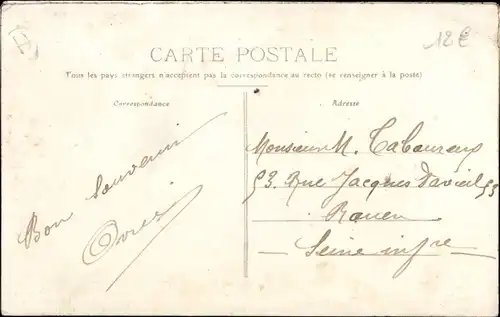 12€
CARTE POSTALE
Tous les pays étrangers n'acceptent pas la correspondance au recto (se renseigner à la poste)
Correspondance
Adresse
Bon Souvenir
Monsieur M. Taboureux
53. Rue Jacques Daviel 53
Rouen
Seine infre